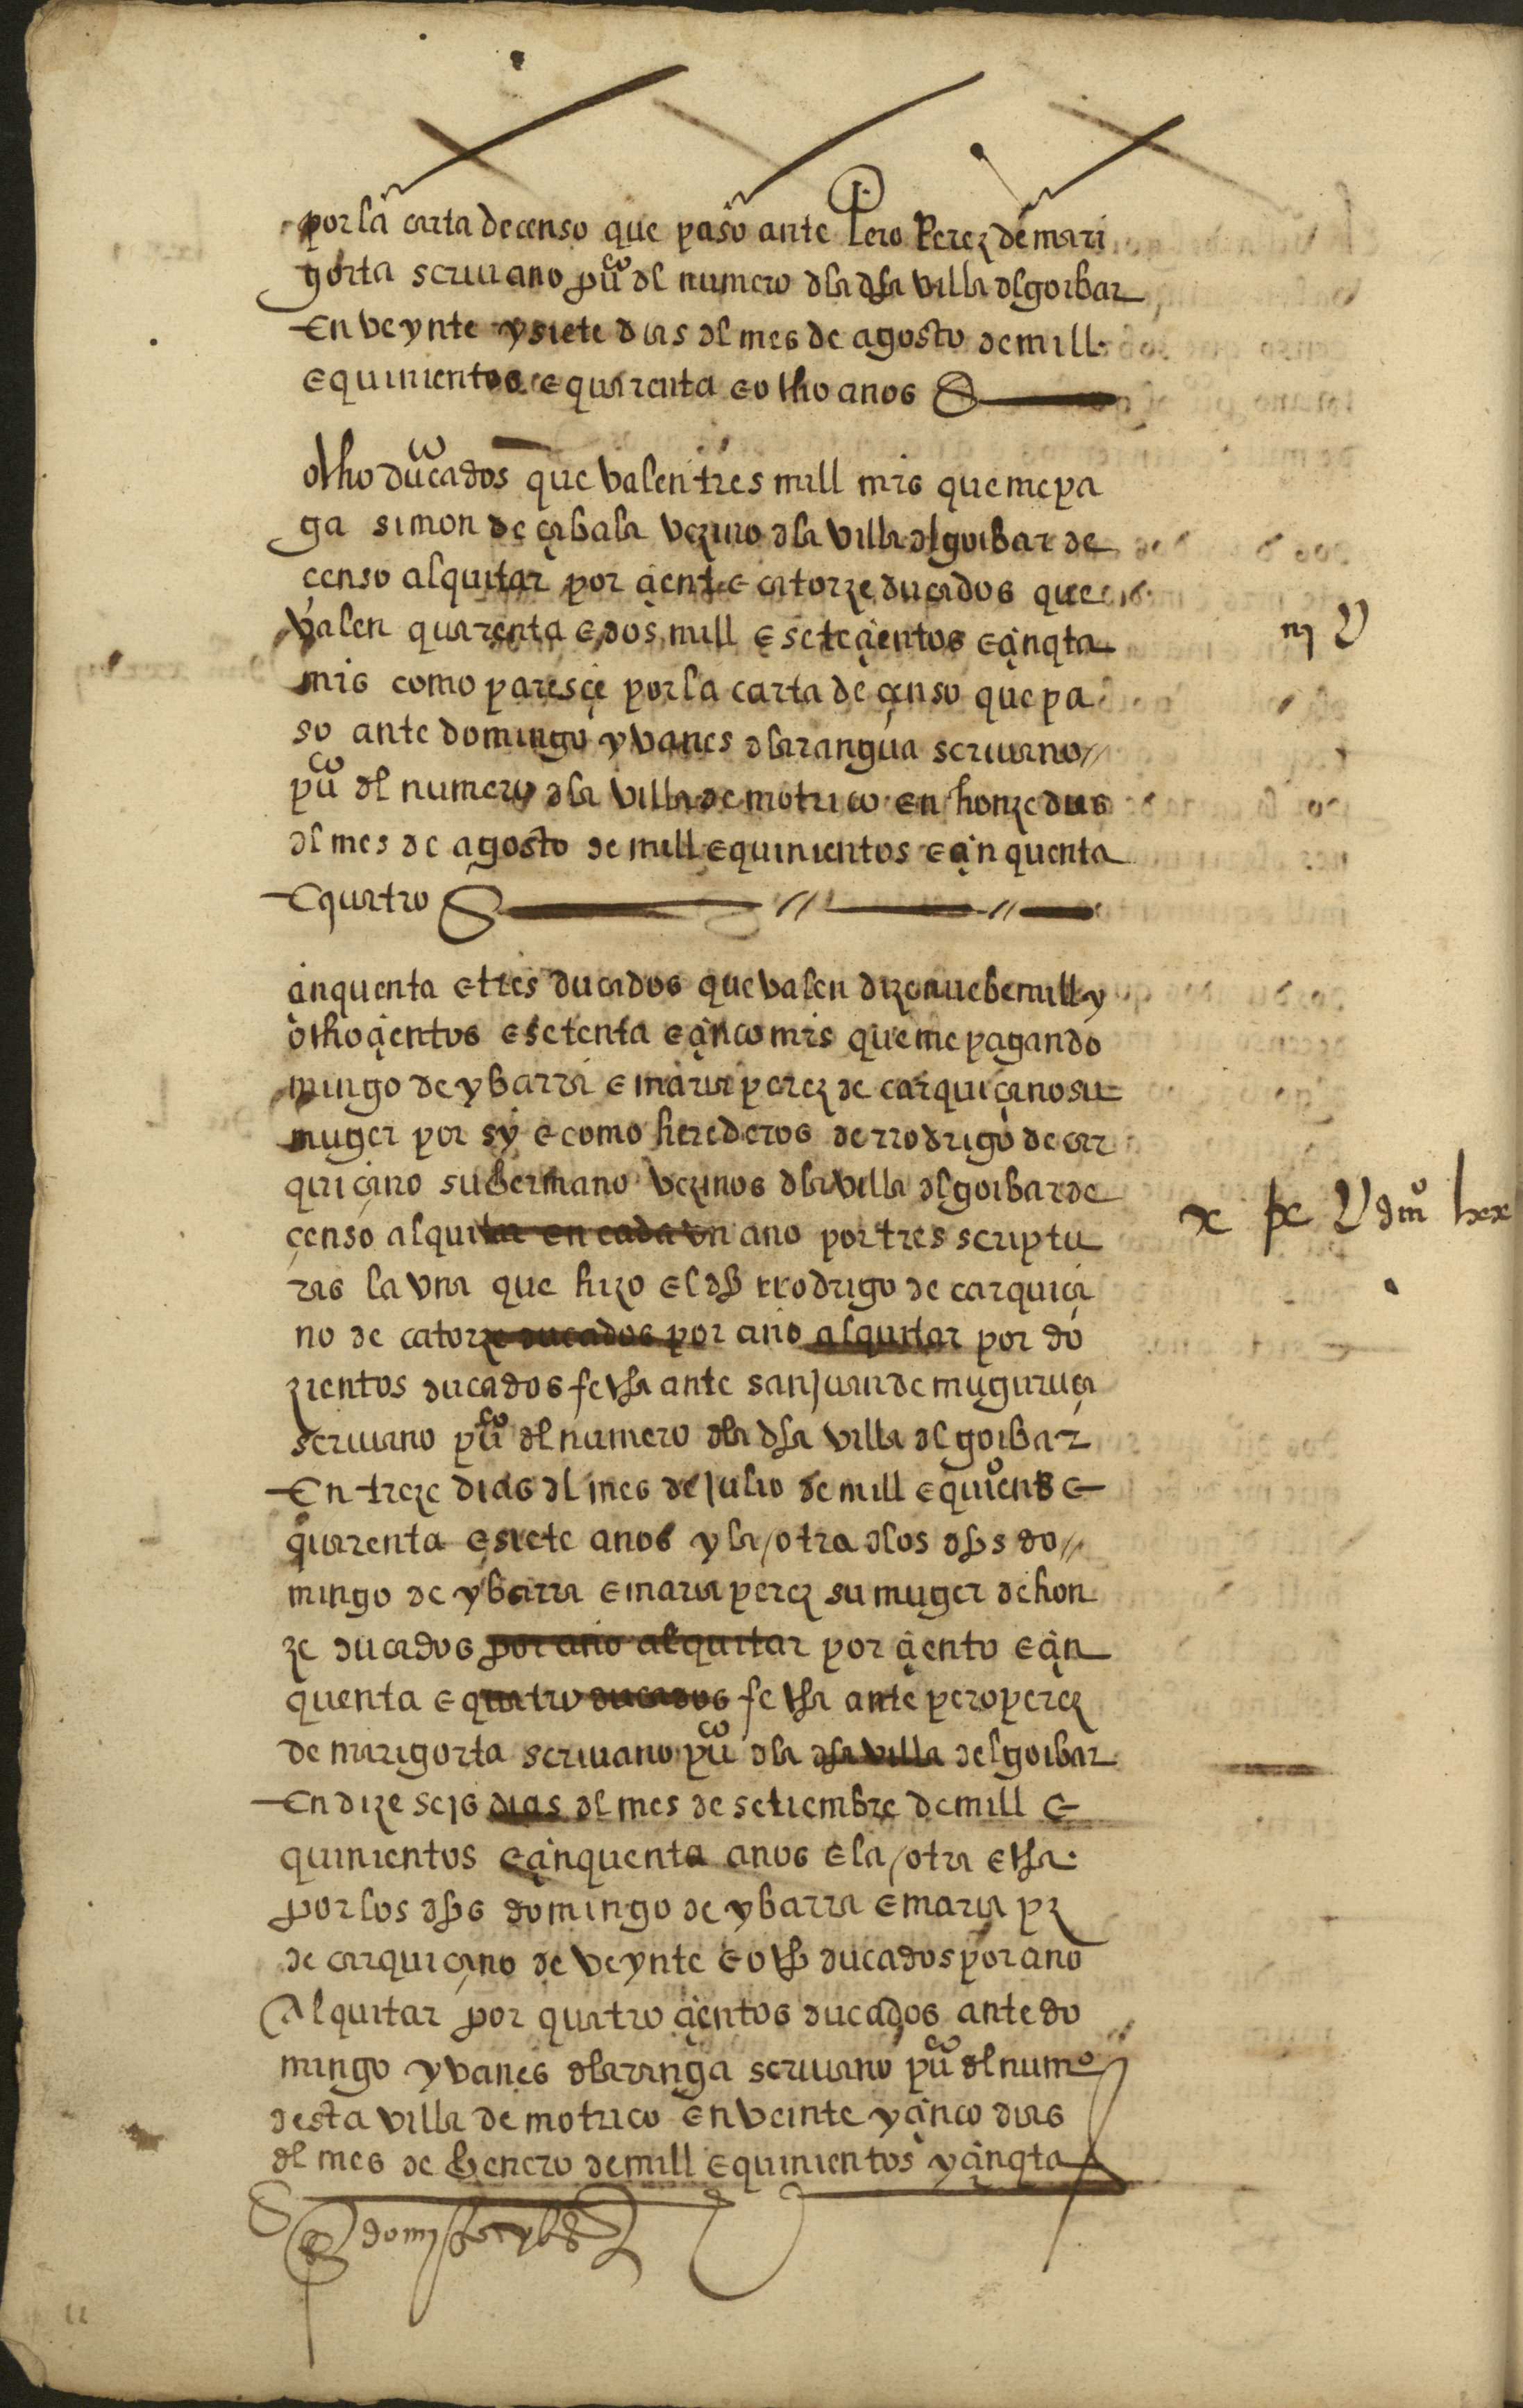 por la carta de censo que paso ante Pero Perez de mari
gorta scriuano pu^co dl numero dla dha villa dlgoibar
En veynte y siete dias dl mes de agosto de mill
e quinientos e quarenta e otho anos
otho ducados que valen tres mill mrs que me pa
ga simon de çabala vezino dla villa dlgoibar de
çenso alquitar por çient e catorze ducados que
valen quarenta e dos mill e seteçientos e çinqta
mrs como paresçe por la carta de çenso que pa
so ante domingo yvanes dlarangua scriuano //
pu^co dl numero dla villa de motrico en honze dias
dl mes de agosto de mill e quinientos e çinquenta
E quatro
çinquenta e tres ducados que valen dizenuebe mill y
othoçientos e setenta e çinco mrs que me pagan do
mingo de ybarra e maria perez de carquiçano su
muger por sy e como herederos de rrodrigo de car
quiçano su hermano vezinos dla villa dlgoibar de
çenso alquitar en cada vn ano por tres scriptu
ras la vna que hizo el dho rrodrigo de carquiça
no de catorze ducados por año alquitar por do
zientos ducados fetha ante san juan de muguruça
scriuano pu^co dl numero dla dha villa dlgoibar
En treze dias dl mes de julio de mill e quios e
quarenta e siete anos y la otra dlos dhos do //
mingo de ybarra e maria perez su muger de hon
ze ducados por año alquitar por çiento e çin
quenta e quatro ducados fetha ante pero perez
de marigorta scriuano pu^co dla dha villa delgoibar
En dize seis dias dl mes de setiembre de mill e
quinientos e çinquenta anos e la otra etha
por los dhos domingo de ybarra e maria pz
de carquiçano de veynte e otho ducados por ano
Alquitar por quatroçientos ducados ante do
mingo yvanes dlaranga scriuano pu^co dl numo
desta villa de motrico en veinte y çinco dias
dl mes de henero de mill e quinientos y çinqta